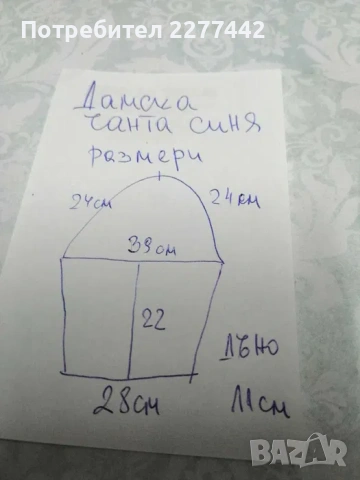 Потребител 2277442
Дамска
чанта синя
размери
24см 24см
39см
22
дъно
28см 11см
BAZAR